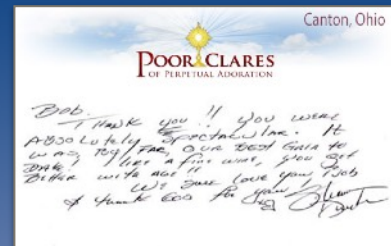 Canton, Ohio
POOR CLARES
OF PERPETUAL ADORATION
Bob.
Thank you!! You were
Absolutely Spectacular. It
was, by far, our best Gala to
DATE! Like a fine wine, you get
Better with age!!
We sure love you, Bob
& thank God for you!